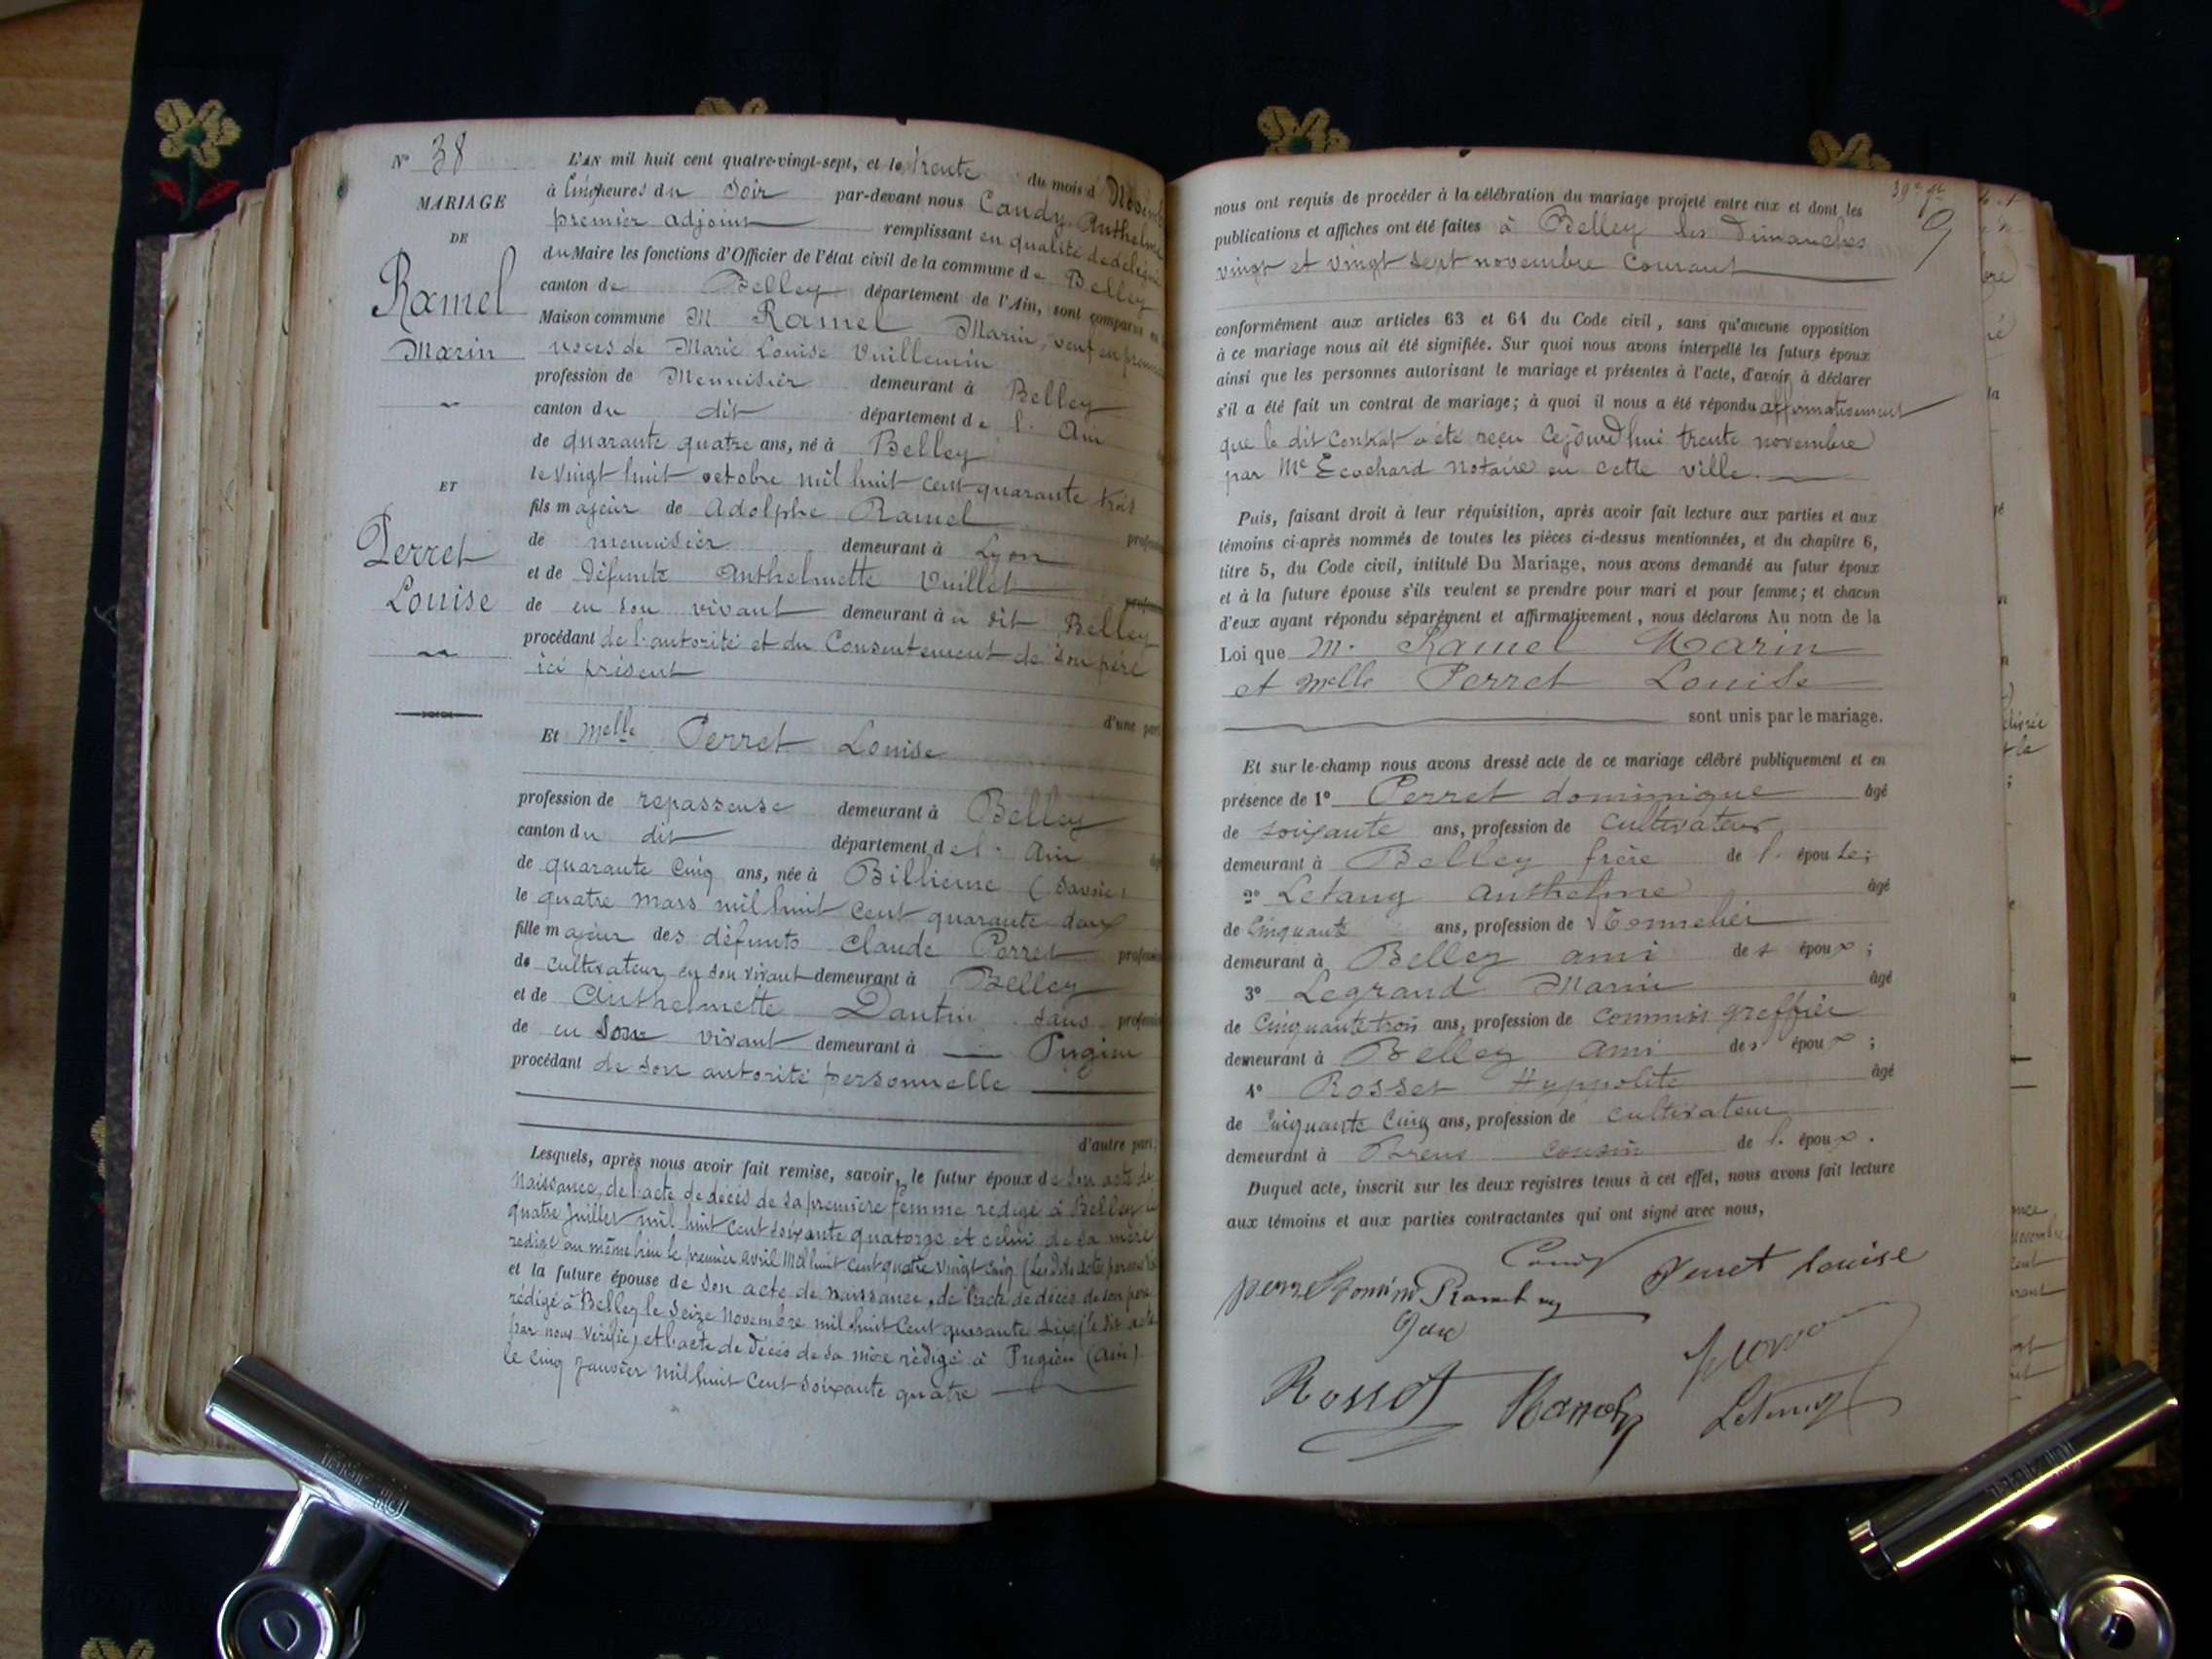 Nº 38
MARIAGE
DE
Ramel
Marin
ET
Perret
Louise
L'AN mil huit cent quatre-vingt-sept, et le trente du mois d Novembre
à Cinq heures du Soir par-devant nous Candy Anthelme
premier adjoint remplissant en qualité de délégué
du Maire les fonctions d'Officier de l'état civil de la commune de Belley
canton de Belley département de l'Ain, sont comparus en
Maison commune M Ramel Marin, veuf en premières
noces de Marie Louise Vuillemin
profession de Menuisier demeurant à Belley
canton du dit département de l. Ain
de quarante quatre ans, né à Belley
le vingt huit octobre mil huit cent quarante trois
fils majeur de Adolphe Ramel profession
de menuisier demeurant à Lyon
et de défunte Anthelmette Vuillet
de en son vivant demeurant à u dit Belley
procédant de l'autorité et du Consentement de son père
ici présent
d'une part
Et Melle Perret Louise
profession de repasseuse demeurant à Belley
canton du dit département de l. Ain
de quarante Cinq ans, née à Billieme (Savoie)
le quatre mars mil huit cent quarante deux
fille majeur des défunts Claude Perret profession
de cultivateur en son vivant demeurant à Belley
et de Anthelmette Dantin sans profession
de en son vivant demeurant à Pugieu
procédant de son autorité personnelle
d'autre part;
Lesquels, après nous avoir fait remise, savoir, le futur époux de son acte de
Naissance, de l'acte de décès de sa première femme rédigé à Belley le
quatre Juillet mil huit cent soixante quatorze et celui de sa mère
rédigé au même lieu le premier avril Mil huit Cent quatre vingt Cinq
et la future épouse de son acte de naissance, de l'acte de décès de son père
rédigé à Belley le Seize Novembre mil huit Cent quarante le dit acte
par nous vérifié, et l'acte de décès de sa mère rédigé à Pugieu (Ain)
le cinq Janvier mil huit Cent soixante quatre
nous ont requis de procéder à la célébration du mariage projeté entre eux et dont les
publications et affiches ont été faites à Belley les Dimanches
vingt et vingt sept novembre Courant
conformément aux articles 63 et 64 du Code civil, sans qu'aucune opposition
à ce mariage nous ait été signifiée. Sur quoi nous avons interpellé les futurs époux
ainsi que les personnes autorisant le mariage et présentes à l'acte, d'avoir à déclarer
s'il a été fait un contrat de mariage; à quoi il nous a été répondu affirmativement
que le dit contrat a été reçu Cejourd'hui trente novembre
par Me Ecochard Notaire en cette ville.
Puis, faisant droit à leur réquisition, après avoir fait lecture aux parties et aux
témoins ci-après nommés de toutes les pièces ci-dessus mentionnées, et du chapitre 6,
titre 5, du Code civil, intitulé Du Mariage, nous avons demandé au futur époux
et à la future épouse s'ils veulent se prendre pour mari et pour femme; et chacun
d'eux ayant répondu séparément et affirmativement, nous déclarons Au nom de la
Loi que M. Ramel Marin
et Melle Perret Louise
sont unis par le mariage.
Et sur-le-champ nous avons dressé acte de ce mariage célébré publiquement et en
présence de 1º Perret dominique âgé
de soixante ans, profession de cultivateur
demeurant à Belley frère de l. épouse;
2º Letang Anthelme âgé
de Cinquante ans, profession de Tonnelier
demeurant à Belley ami des époux;
3º Legrand Marin âgé
de Cinquante trois ans, profession de commis greffier
demeurant à Belley ami des époux;
4º Rosset Hyppolite âgé
de Cinquante Cinq ans, profession de cultivateur
demeurant à Brens cousin de l. époux.
Duquel acte, inscrit sur les deux registres tenus à cet effet, nous avons fait lecture
aux témoins et aux parties contractantes qui ont signé avec nous,
Perret Louise
Rosset
Letang